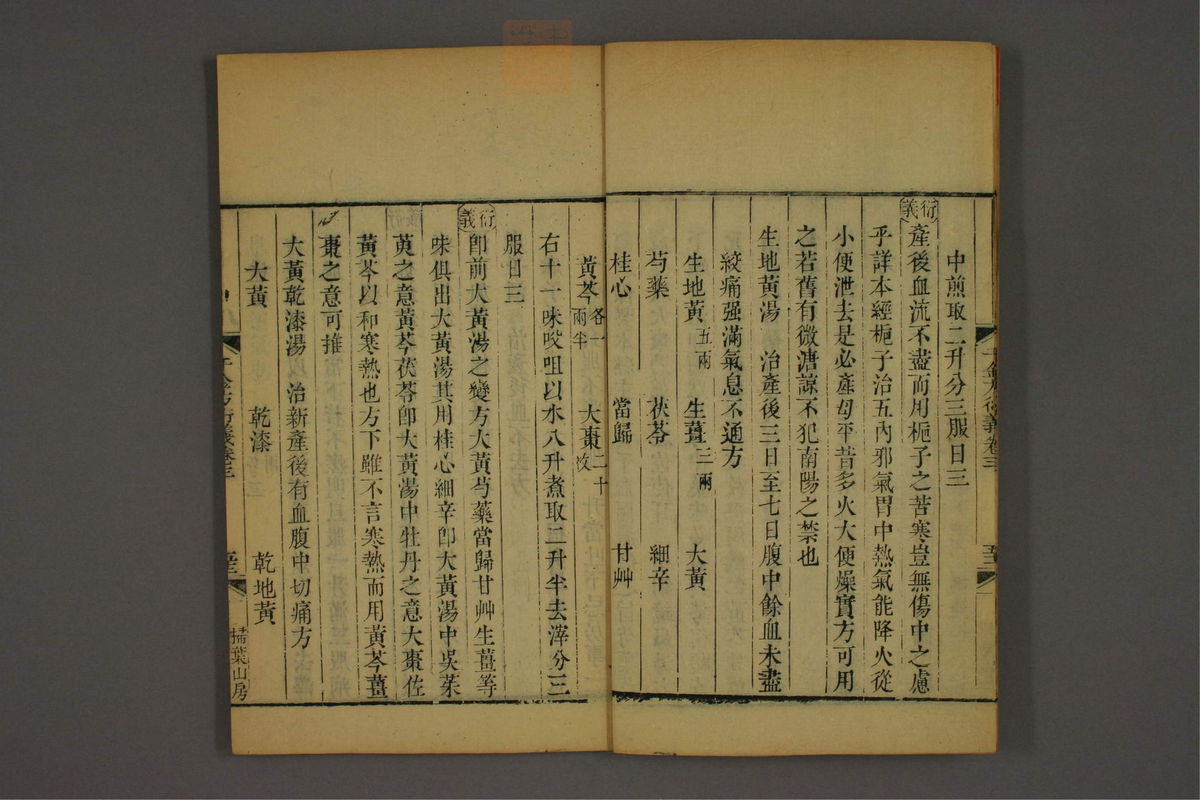 中煎取二升分三服日三
衍義 產後血流不盡而用梔子之苦寒豈無傷中之慮
乎詳本經梔子治五內邪氣胃中熱氣能降火從
小便泄去是必產母平昔多火大便燥實方可用
之若舊有微溏諒不犯南陽之禁也
生地黃湯 治產後三日至七日腹中餘血未盡
絞痛强滿氣息不通方
生地黃五兩 生薑三兩 大黃
芍藥 茯苓 細辛
桂心 當歸 甘艸
黃芩各一兩半 大棗二十枚
右十一味㕮咀以水八升煮取二升半去滓分三
服日三
衍義 卽前大黃湯之變方大黃芍藥當歸甘艸生薑等
味俱出大黃湯其用桂心細辛卽大黃湯中吳茱
萸之意黃芩茯苓卽大黃湯中牡丹之意大棗佐
黃芩以和寒熱也方下雖不言寒熱而用黃芩薑
棗之意可推
大黃乾漆湯 治新產後有血腹中切痛方
大黃 乾漆 乾地黃
千金方衍義卷三
掃葉山房